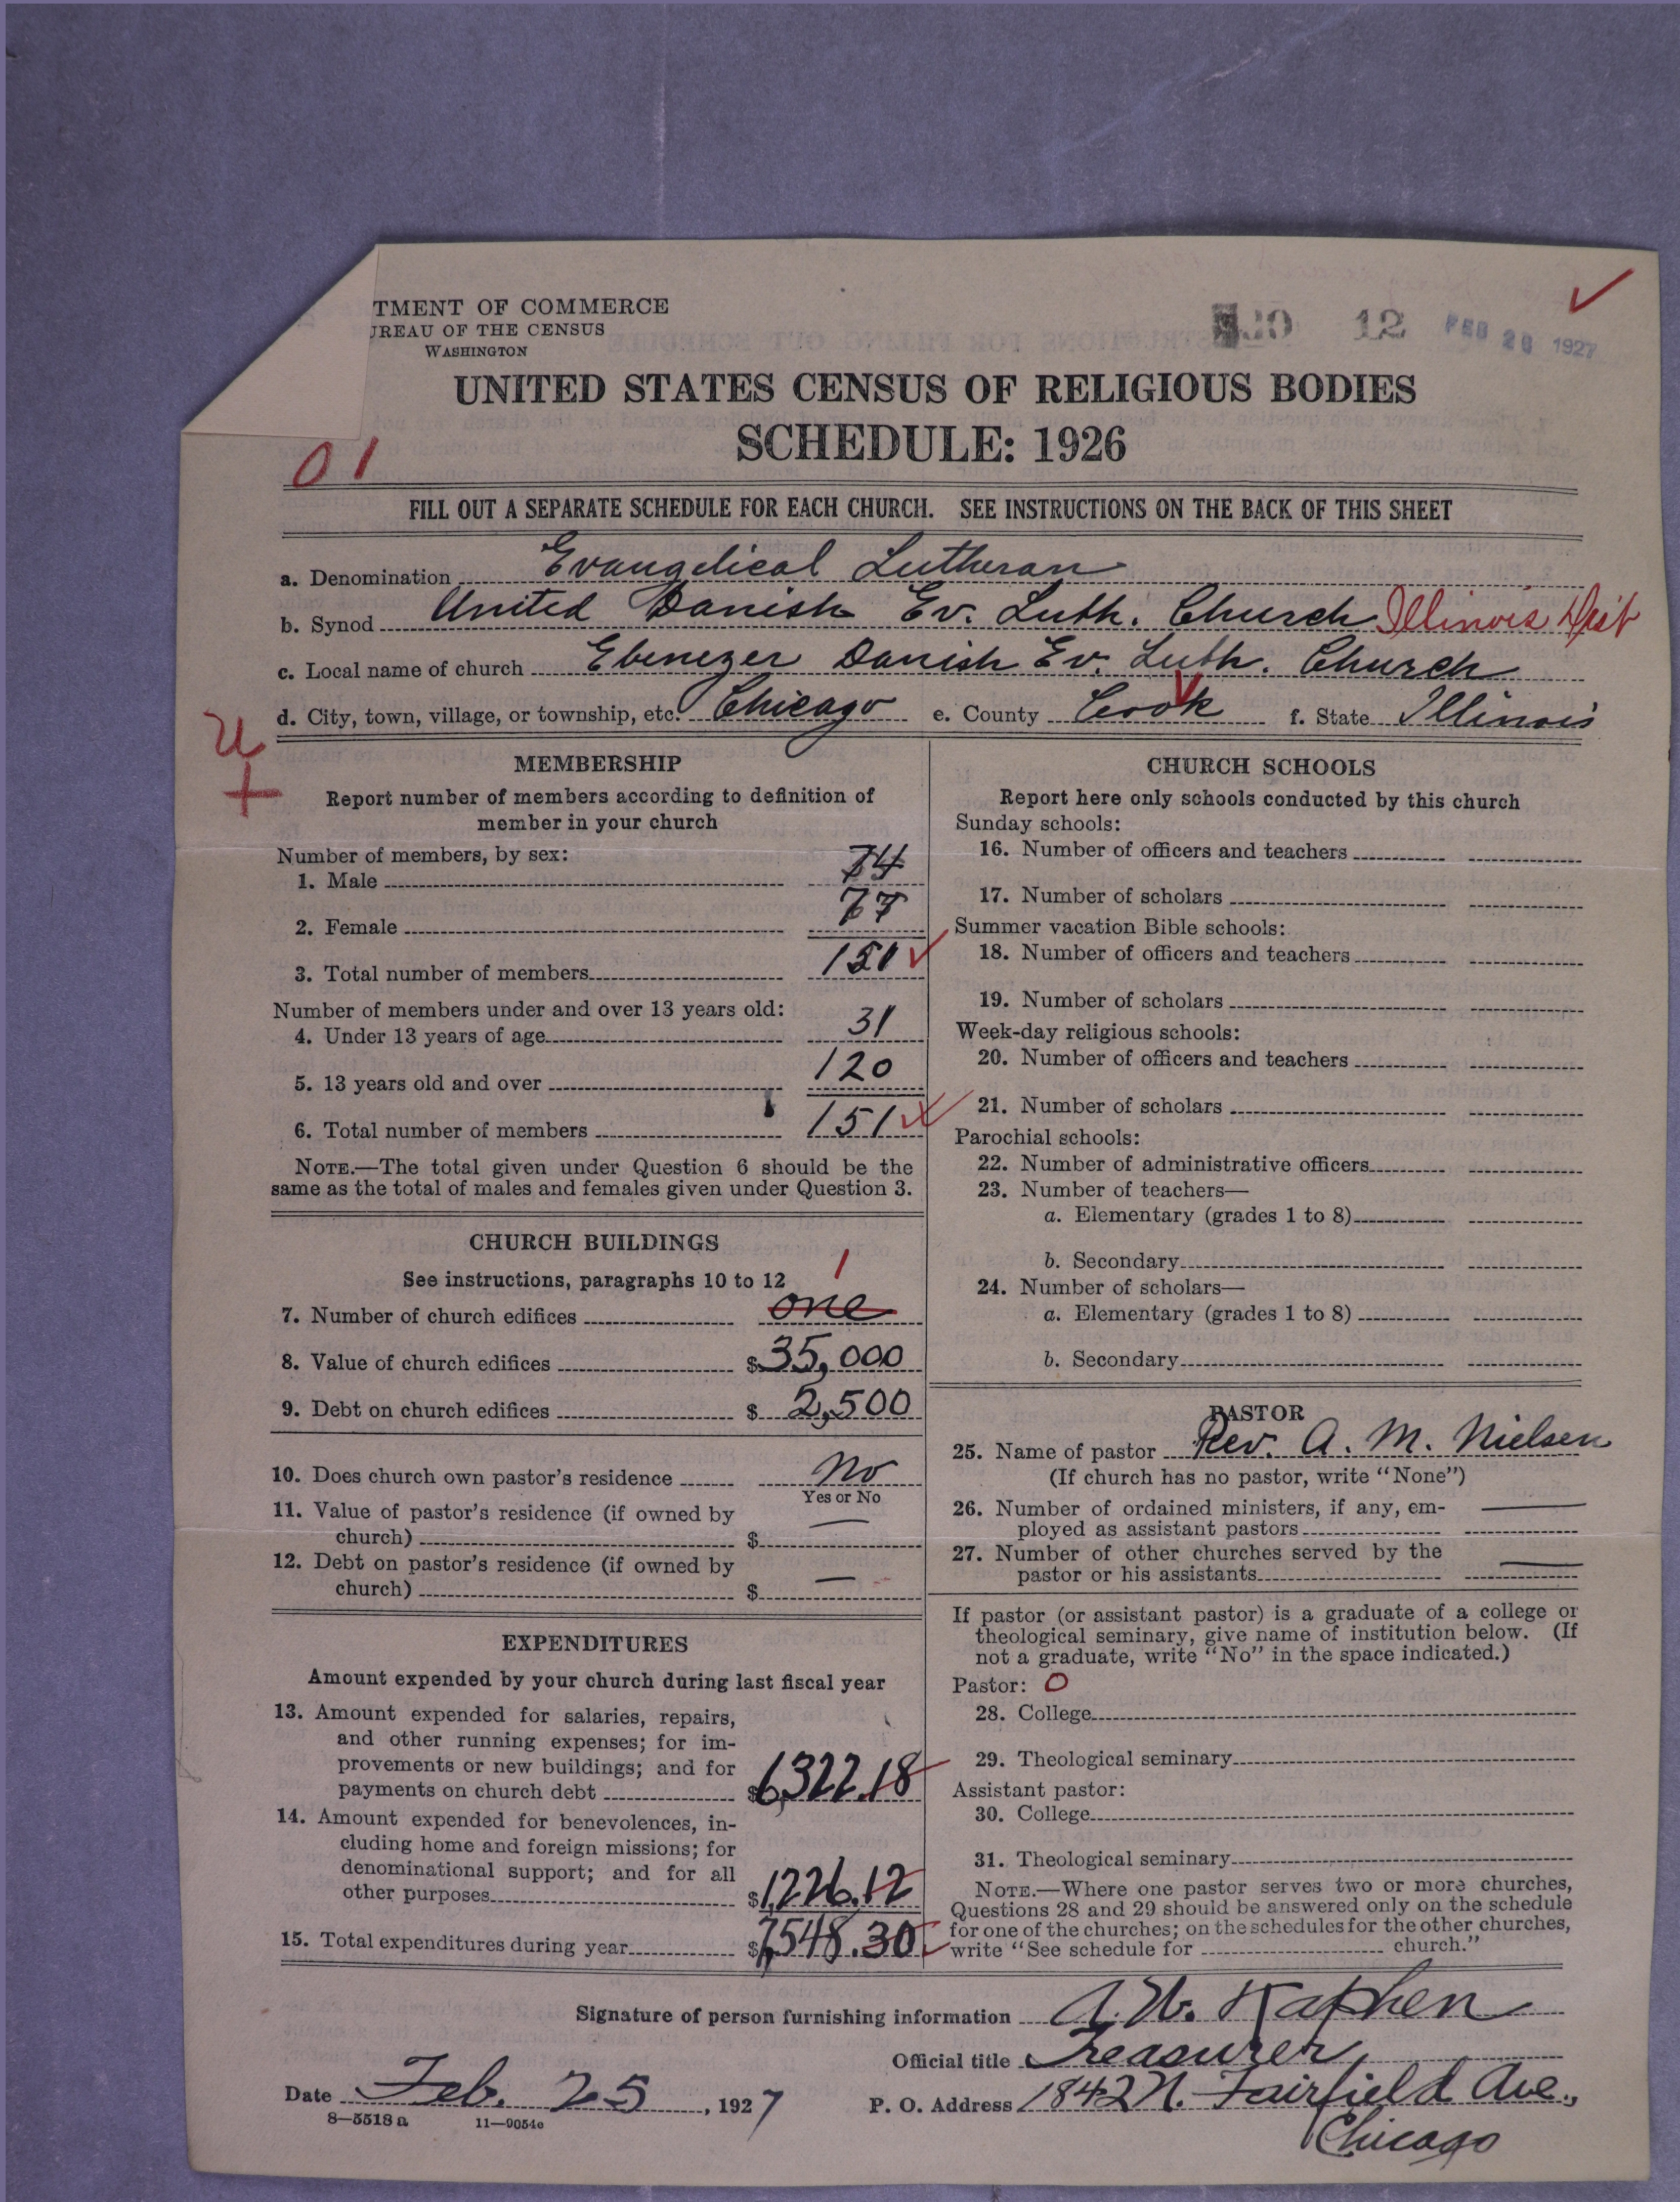 TMENT OF COMMERCE
UREAU OF THE CENSUS
WASHINGTON
12 FEB 28 1927
UNITED STATES CENSUS OF RELIGIOUS BODIES
SCHEDULE: 1926
01
FILL OUT A SEPARATE SCHEDULE FOR EACH CHURCH. SEE INSTRUCTIONS ON THE BACK OF THIS SHEET
a. Denomination Evangelical Lutheran
b. Synod United Danish Ev. Luth. Church Illinois Dist
c. Local name of church Ebenezer Danish Ev. Luth. Church
d. City, town, village, or township, etc. Chicago e. County Cook f. State Illinois
U
MEMBERSHIP
Report number of members according to definition of
member in your church
Number of members, by sex:
1. Male 74
2. Female 77
3. Total number of members 151
Number of members under and over 13 years old:
4. Under 13 years of age 31
5. 13 years old and over 120
6. Total number of members 151
NOTE.—The total given under Question 6 should be the
same as the total of males and females given under Question 3.
CHURCH BUILDINGS
See instructions, paragraphs 10 to 12 1
7. Number of church edifices one
8. Value of church edifices $35,000
9. Debt on church edifices $2,500
10. Does church own pastor's residence No
Yes or No
11. Value of pastor's residence (if owned by
church) $ —
12. Debt on pastor's residence (if owned by
church) $ —
EXPENDITURES
Amount expended by your church during last fiscal year
13. Amount expended for salaries, repairs,
and other running expenses; for im-
provements or new buildings; and for
payments on church debt $6,322.18
14. Amount expended for benevolences, in-
cluding home and foreign missions; for
denominational support; and for all
other purposes $1,226.12
15. Total expenditures during year $7,548.30
CHURCH SCHOOLS
Report here only schools conducted by this church
Sunday schools:
16. Number of officers and teachers
17. Number of scholars
Summer vacation Bible schools:
18. Number of officers and teachers
19. Number of scholars
Week-day religious schools:
20. Number of officers and teachers
21. Number of scholars
Parochial schools:
22. Number of administrative officers
23. Number of teachers—
a. Elementary (grades 1 to 8)
b. Secondary
24. Number of scholars—
a. Elementary (grades 1 to 8)
b. Secondary
PASTOR
25. Name of pastor Rev. A. M. Nielsen
(If church has no pastor, write "None")
26. Number of ordained ministers, if any, em-
ployed as assistant pastors —
27. Number of other churches served by the
pastor or his assistants —
If pastor (or assistant pastor) is a graduate of a college or
theological seminary, give name of institution below. (If
not a graduate, write "No" in the space indicated.)
Pastor: 0
28. College
29. Theological seminary
Assistant pastor:
30. College
31. Theological seminary
NOTE.—Where one pastor serves two or more churches,
Questions 28 and 29 should be answered only on the schedule
for one of the churches; on the schedules for the other churches,
write "See schedule for church."
Signature of person furnishing information A. W. Kaphen
Official title Treasurer,
Date Feb. 25, 1927 P. O. Address 1842 N. Fairfield Ave.,
8—5518 a 11—9054c
Chicago